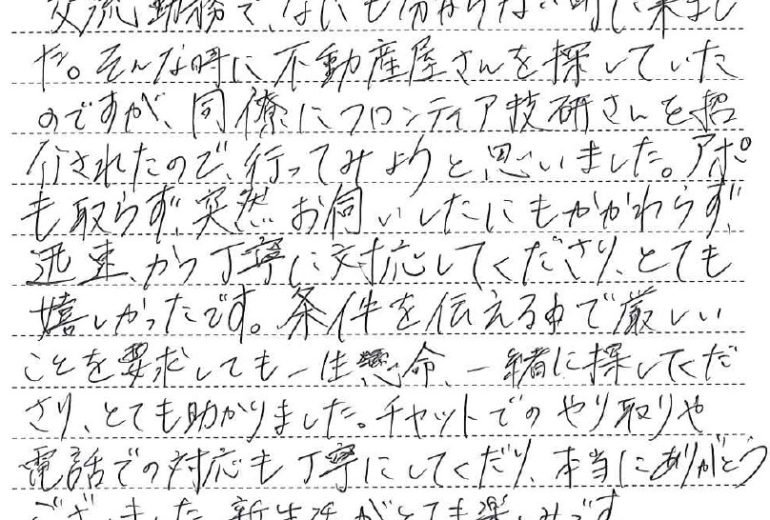 交流勤務で、なにも分からない町に来まし
た。そんな時に不動産屋さんを探していた
のですが、同僚にフロンティア技研さんを招
介されたので、行ってみようと思いました。アポ
も取らず、突然お伺いしたにもかかわらず、
迅速、かつ丁寧に対応してくださり、とても
嬉しかったです。条件を伝える中で厳しい
ことを要求しても一生懸命、一緒に探してくだ
さり、とても助かりました。チャットでのやり取りや
電話での対応も丁寧にしてくだり、本当にありがとう
ございました。新生活がとても楽しみです